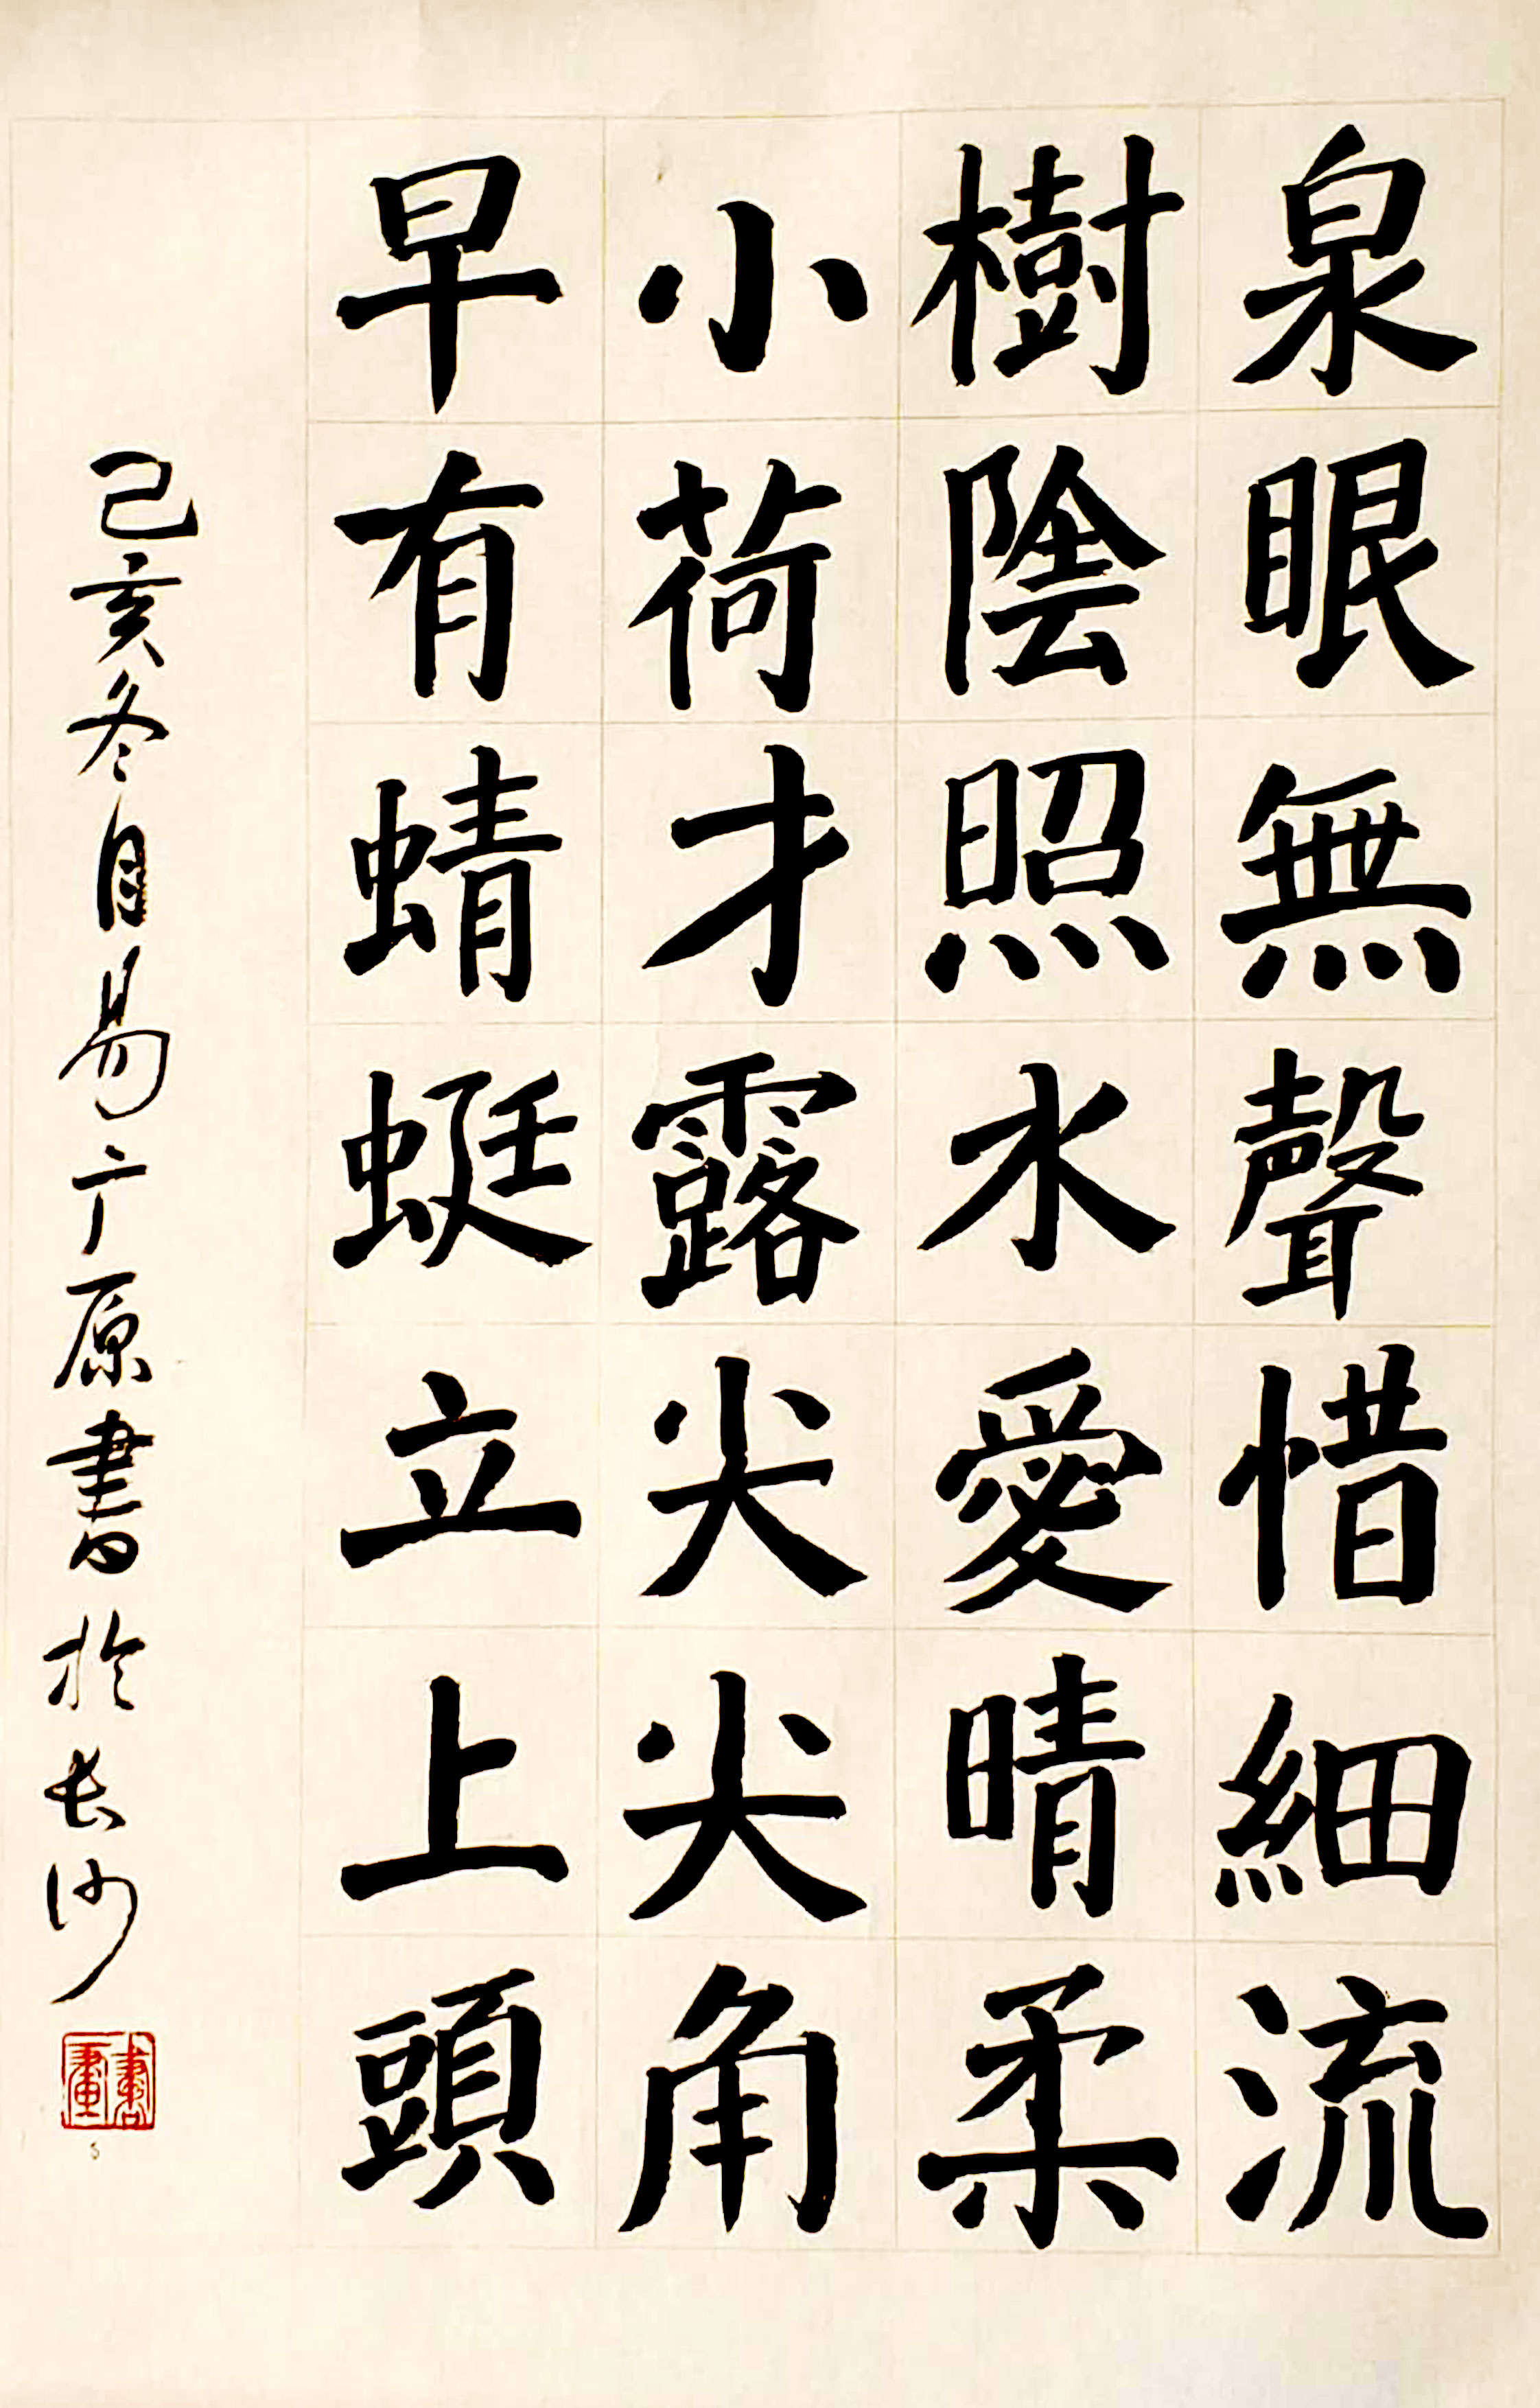 泉眼無聲惜細流
樹陰照水愛晴柔
小荷才露尖尖角
早有蜻蜓立上頭
己亥冬月易广原書於长沙
書畫